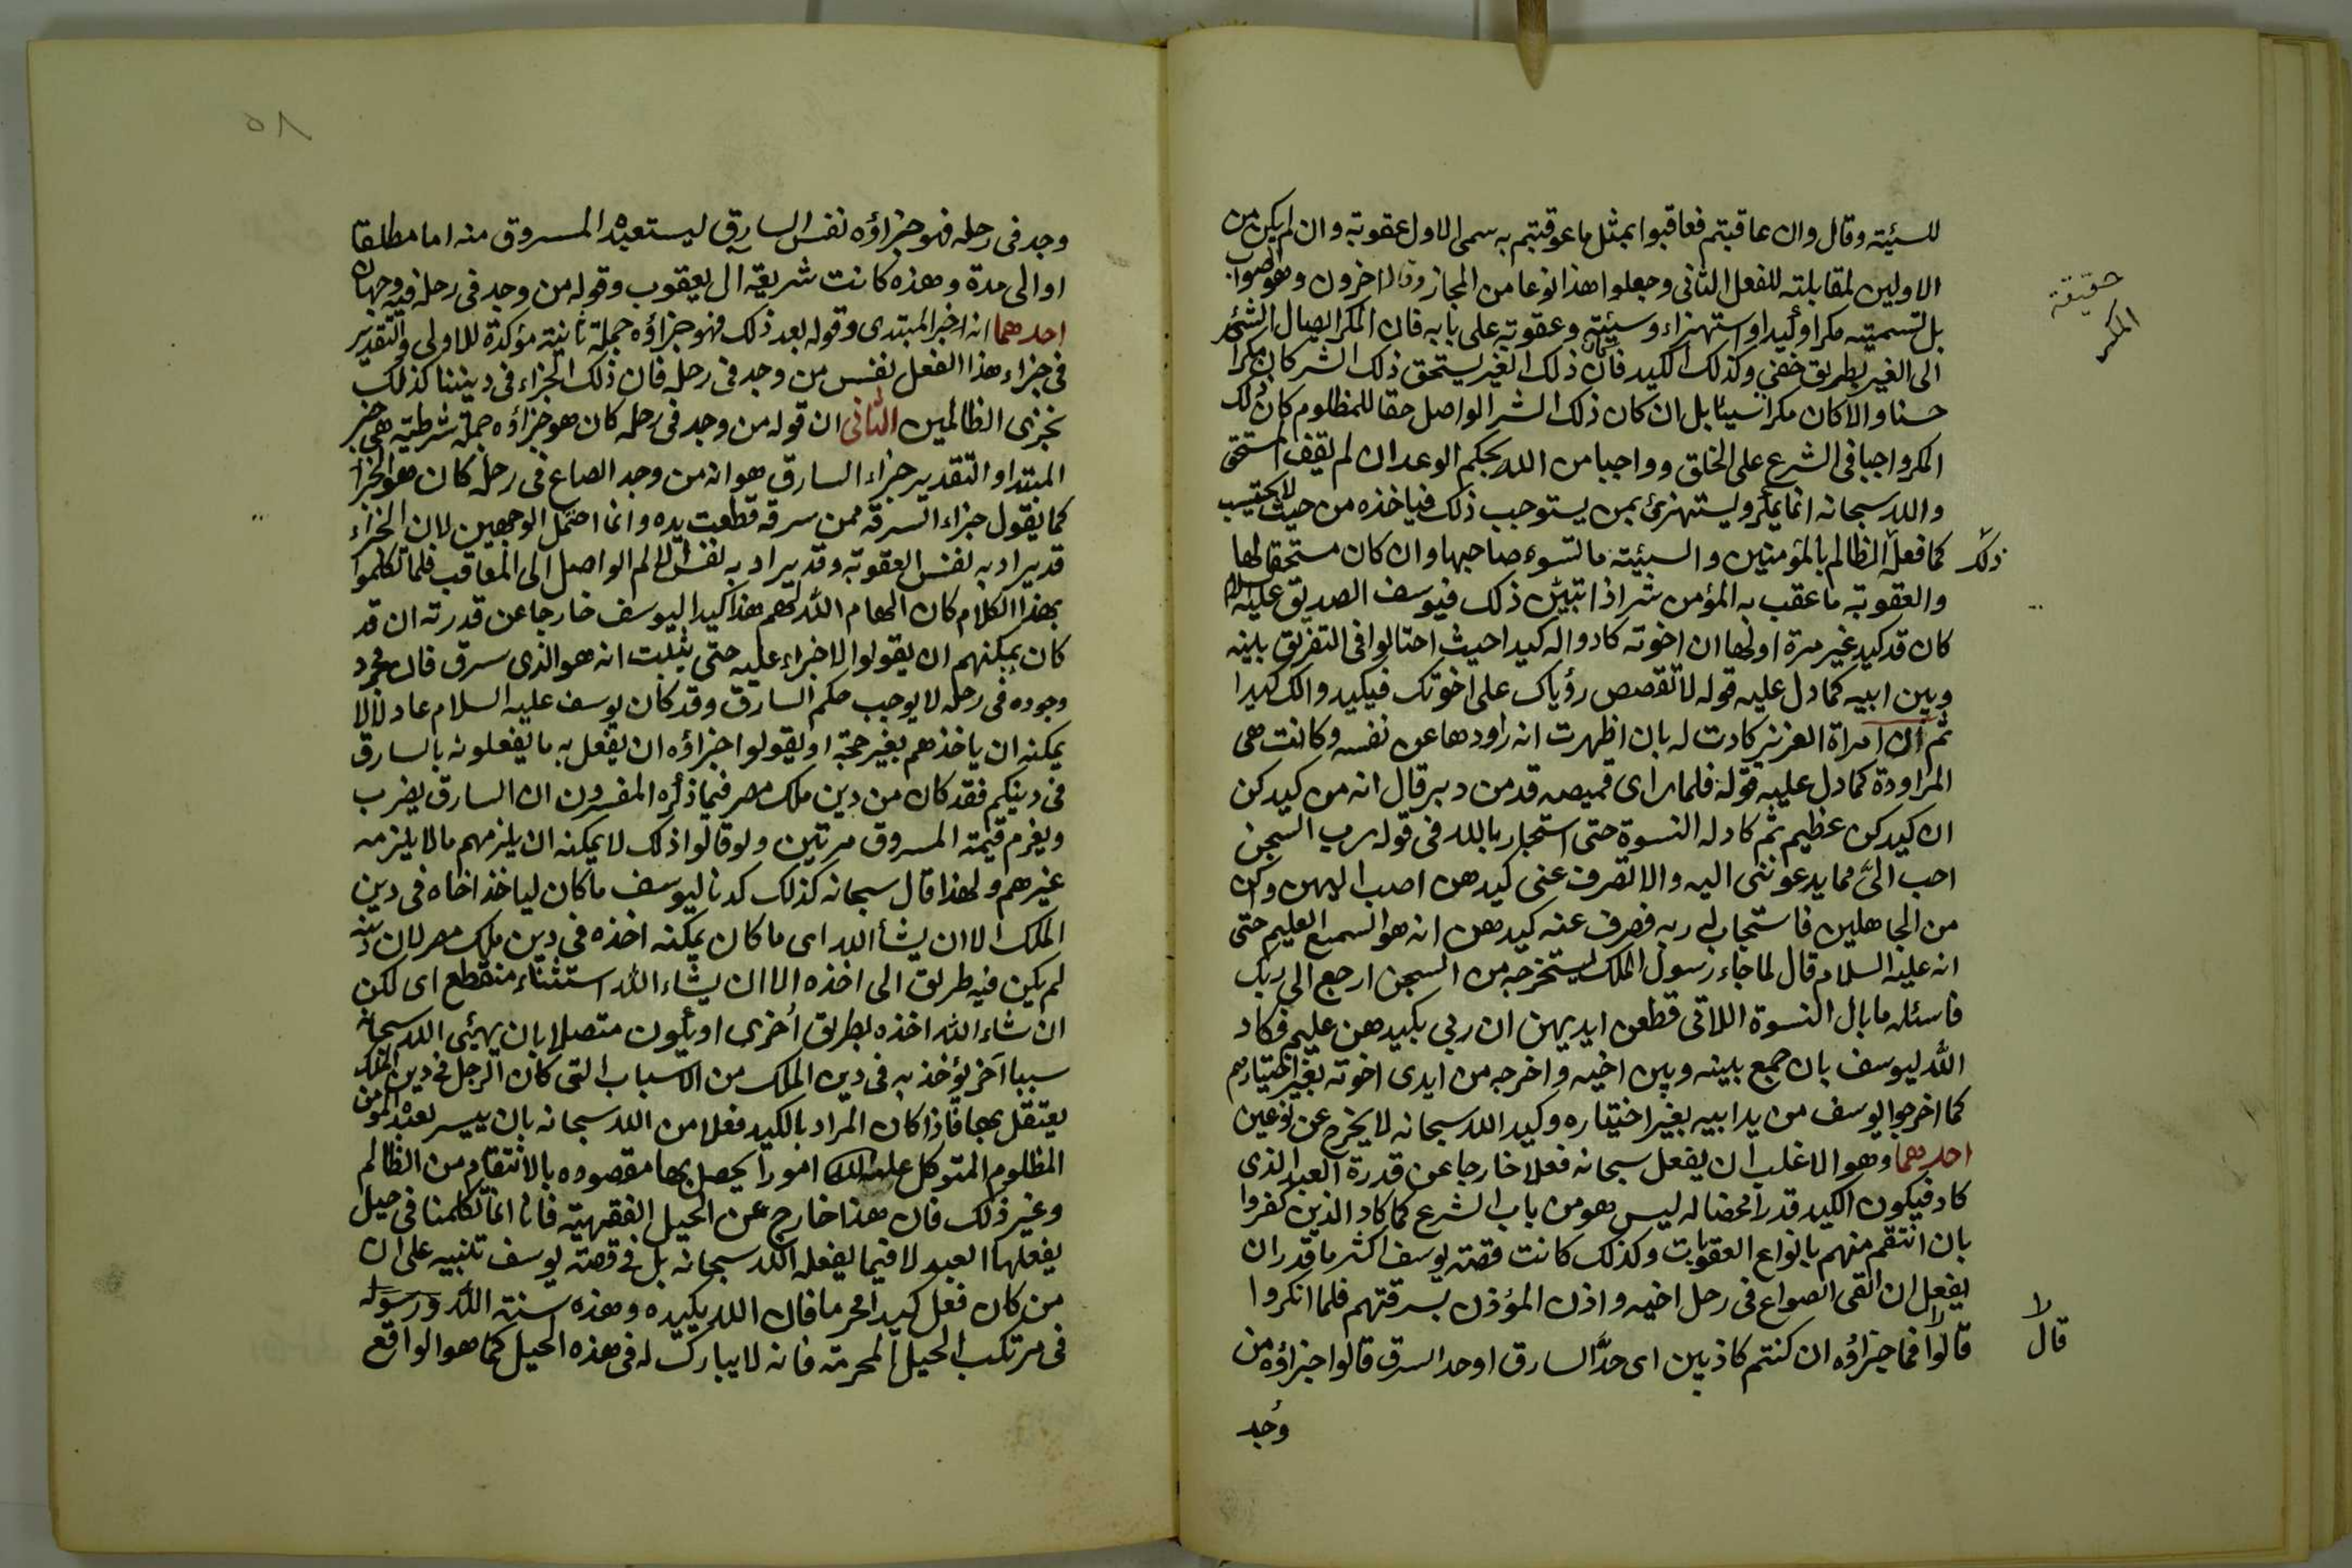 للسيئة وقال وان عاقبتم فعاقبوا بمثل ما عوقبتم به سمى الاول عقوبة وان لم يكن من
الاولين لمقابلته للفعل الثانى وجعلوا هذا نوعا من المجاز وقال اخرون وهو اصوب
بل تسميته مكرا وكيدا واستهزاء وسيئة وعقوبة على بابه فان المكر ايصال الشئ
الى الغير بطريق خفي وكذلك الكيد فان كان ذلك الغير يستحق ذلك الشر كان مكرا
حسنا والا كان مكرا سيئا بل ان كان ذلك الشر الواصل حقا للمظلوم كان ذلك
المكر واجبا فى الشرع على الخلق وواجبا من الله بحكم الوعد ان لم يعف المستحق
والله سبحانه انما يمكر ويستهزئ بمن يستوجب ذلك فياخذه من حيث لا يحتسب
كما فعل الظالم بالمؤمنين والسيئة ما تسوء صاحبها وان كان مستحقا لها
والعقوبة ما عقب به المؤمن شر اذا تبين ذلك فيوسف الصديق عليه السلام
كان قد كيد غير مرة اولها ان اخوته كادوا له كيدا حيث احتالوا فى التفريق بينه
وبين ابيه كما دل عليه قوله لا تقصص رؤياك على اخوتك فيكيدوا لك كيدا
ثم ان امراة العزيز كادت له بان اظهرت انه راودها عن نفسه وكانت هى
المراودة كما دل عليه قوله فلما راى قميصه قد من دبر قال انه من كيدكن
ان كيدكن عظيم ثم كاد له النسوة حتى استجار بالله فى قوله رب السجن
احب الىّ مما يدعوننى اليه والا تصرف عنى كيدهن اصب اليهن واكن
من الجاهلين فاستجاب له ربه فصرف عنه كيدهن انه هو السميع العليم حتى
انه عليه السلام قال لما جاء رسول الملك ليستخرجه من السجن ارجع الى ربك
فاسئله ما بال النسوة اللاتى قطعن ايديهن ان ربي بكيدهن عليم فكاد
الله ليوسف بان جمع بينه وبين اخيه واخرجه من ايدى اخوته بغير اختيارهم
كما اخرجوا يوسف من يد ابيه بغير اختياره وكيد الله سبحانه لا يخرج عن نوعين
احدهما وهو الاغلب ان يفعل سبحانه فعلا خارجا عن قدرة العبد الذى
كاد فيكون الكيد قدرا محضا له ليس هو من باب الشرع كما كاد الذين كفروا
بان انتقم منهم بانواع العقوبات وكذلك كانت قصة يوسف اكثر ما قدر ان
يفعل ان القى الصواع فى رحل اخيه واذن المؤذن بسرقتهم فلما انكروا
قالوا فما جزاؤه ان كنتم كاذبين اى حدّ السارق او حد السرق قالوا جزاؤه من
وُجد
حقيقة
المكر
ذلك
لا
قال
٥٨
وجد فى رحله فهو جزاؤه نفس السارق ليستعبده المسروق منه اما مطلقا
او الى مدة وهذه كانت شريعة ال يعقوب وقوله من وجد فى رحله فيه وجهان
احدهما انه اخبر المبتدى وقوله بعد ذلك فهو جزاؤه جملة ثانية مؤكدة للاولى والتقدير
فى جزاء هذا الفعل نفس من وجد فى رحله فان ذلك الجزاء فى ديننا كذلك
نجزى الظالمين الثانى ان قوله من وجد فى رحله كان هو جزاؤه جملة شرطية هى خبر
المبتدا والتقدير جزاء السارق هو انه من وجد الصاع فى رحله كان هو الجزا
كما يقول جزاء السرقة ممن سرقه قطعت يده وانما احتمل الوجهين لان الجزاء
قد يراد به نفس العقوبة وقد يراد به نفس الالم الواصل الى المعاقب فلما تكلموا
بهذا الكلام كان الهام الله لهم هذا كيدا ليوسف خارجا عن قدرته ان قد
كان يمكنهم ان يقولوا لا جزاء عليه حتى يثبت انه هو الذى سرق فان مجرد
وجوده فى رحله لا يوجب حكم السارق وقد كان يوسف عليه السلام عادلا لا
يمكنه ان ياخذهم بغير حجة او يقولوا جزاؤه ان يفعل به ما يفعلونه بالسارق
فى دينكم فقد كان من دين ملك مصر فيما ذكره المفسرون ان السارق يضرب
ويغرم قيمة المسروق مرتين ولو قالوا ذلك لا يمكنه ان يلزمهم ما لا يلزمه
غيرهم ولهذا قال سبحانه كذلك كدنا ليوسف ما كان لياخذ اخاه فى دين
الملك الا ان يشأ الله اى ما كان يمكنه اخذه فى دين ملك مصر لان دينه
لم يكن فيه طريق الى اخذه الا ان يشاء الله استثناء منقطع اى لكن
ان شاء الله اخذه بطريق أخرى او يكون متصلا بان يهيئ الله سبحانه
سببا آخر يؤخذ به فى دين الملك من الاسباب التى كان الرجل فى دين الملك
يعتقل بها فاذا كان المراد بالكيد فعلا من الله سبحانه بان ييسر لعبده المؤمن
المظلوم المتوكل عليه امورا يحصل بها مقصوده بالانتقام من الظالم
وغير ذلك فان هذا خارج عن الحيل الفقهية فانا انما تكلمنا فى حيل
يفعلها العبد لا فيما يفعله الله سبحانه بل فى قصة يوسف تنبيه على ان
من كان فعل كيدا محرما فان الله يكيده وهذه سنة الله ورسوله
فى مرتكب الحيل المحرمة فانه لا يبارك له فى هذه الحيل كما هو الواقع